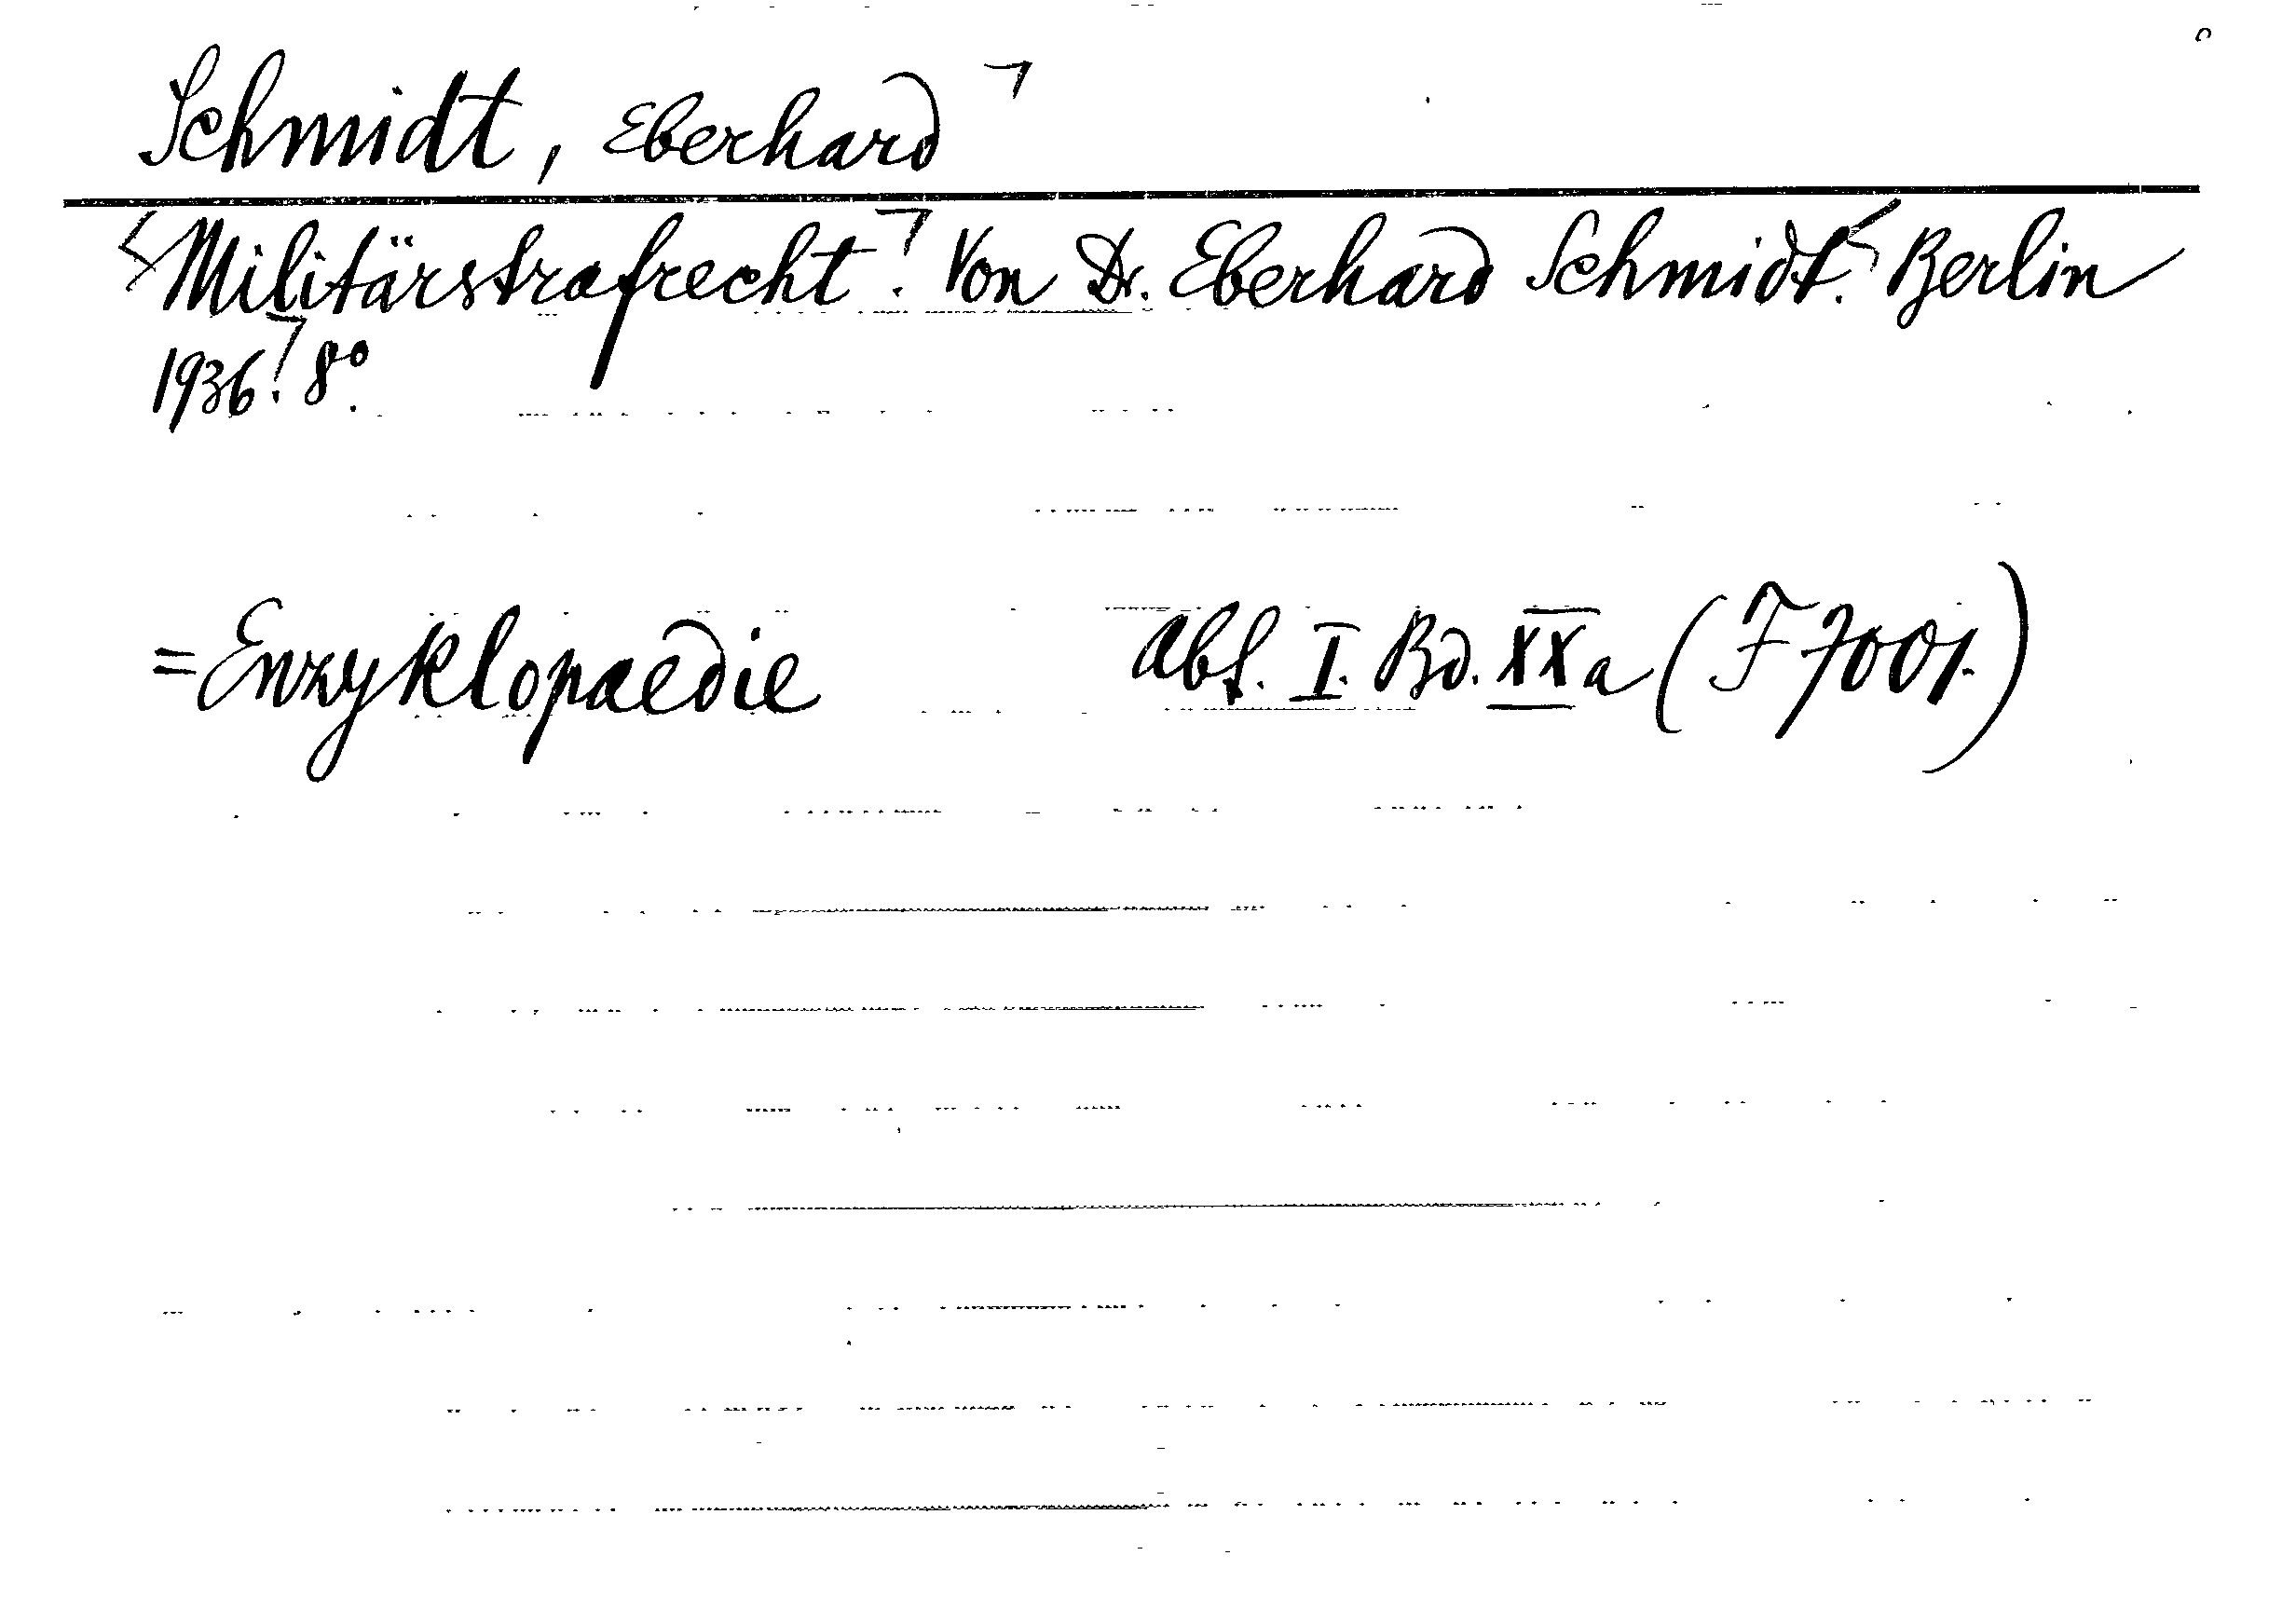 Schmidt, Eberhard
Militärstrafrecht. Von Dr. Eberhard Schmidt. Berlin
1936. 8°.
=Enzyklopaedie Abt. I. Bd. XXa (F 7001.)